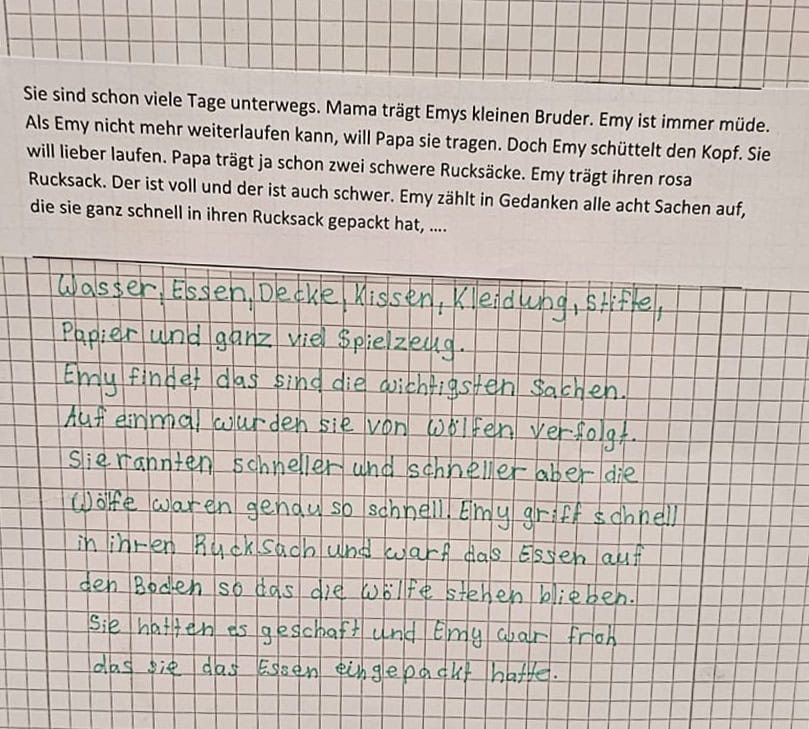 Sie sind schon viele Tage unterwegs. Mama trägt Emys kleinen Bruder. Emy ist immer müde.
Als Emy nicht mehr weiterlaufen kann, will Papa sie tragen. Doch Emy schüttelt den Kopf. Sie
will lieber laufen. Papa trägt ja schon zwei schwere Rucksäcke. Emy trägt ihren rosa
Rucksack. Der ist voll und der ist auch schwer. Emy zählt in Gedanken alle acht Sachen auf,
die sie ganz schnell in ihren Rucksack gepackt hat, ....
Wasser, Essen, Decke, Kissen, Kleidung, Stifte,
Papier und ganz viel Spielzeug.
Emy findet das sind die wichtigsten Sachen.
Auf einmal wurden sie von Wölfen verfolgt.
Sie rannten schneller und schneller aber die
Wölfe waren genau so schnell. Emy griff schnell
in ihren Rucksach und warf das Essen auf
den Boden so das die Wölfe stehen blieben.
Sie hatten es geschaft und Emy war froh
das sie das Essen eingepackt hatte.